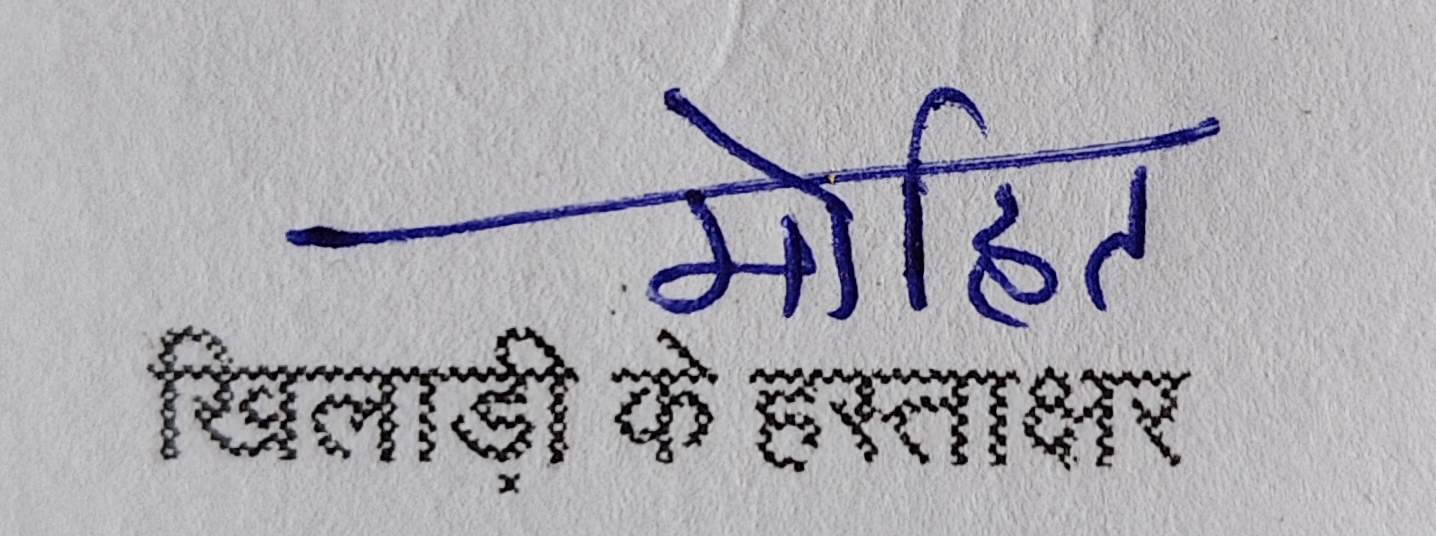 मोहित
खिलाड़ी के हस्ताक्षर